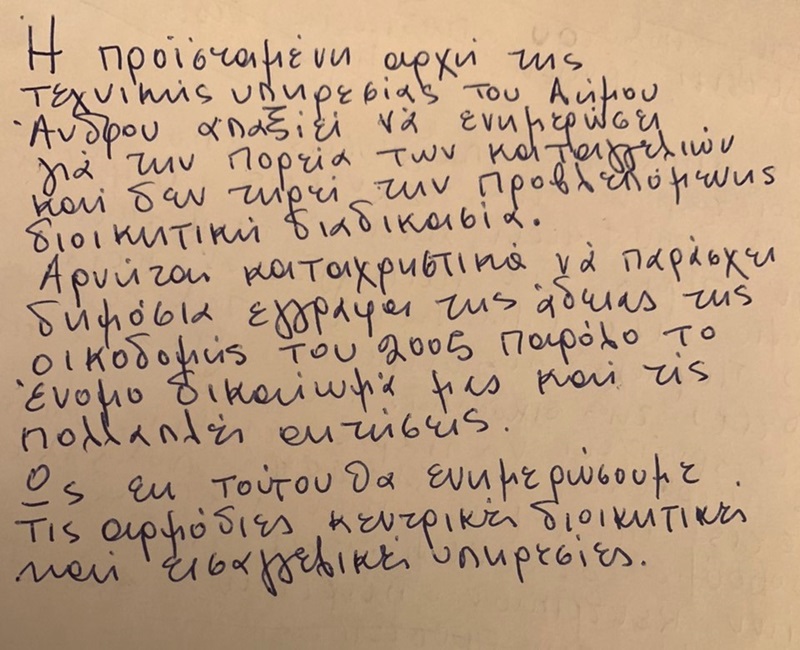 Η προϊσταμένη αρχή της
τεχνικής υπηρεσίας του Δήμου
Άνδρου απαξιεί νά ενημερώσει
γιά την πορεία των καταγγελιών
και δεν τηρεί την προβλεπόμενης
διοικητική διαδικασία.
Αρνήται καταχρηστικά νά παράσχει
δημόσια έγγραφα της άδειας της
οικοδομής του 2005 παρόλο το
έννομο δικαίωμά μας και τίς
πολλαπλές αιτήσεις.
Ως εκ τούτου θα ενημερώσουμε
τις αρμόδιες κεντρικές διοικητικές
και εισαγγελικές υπηρεσίες.